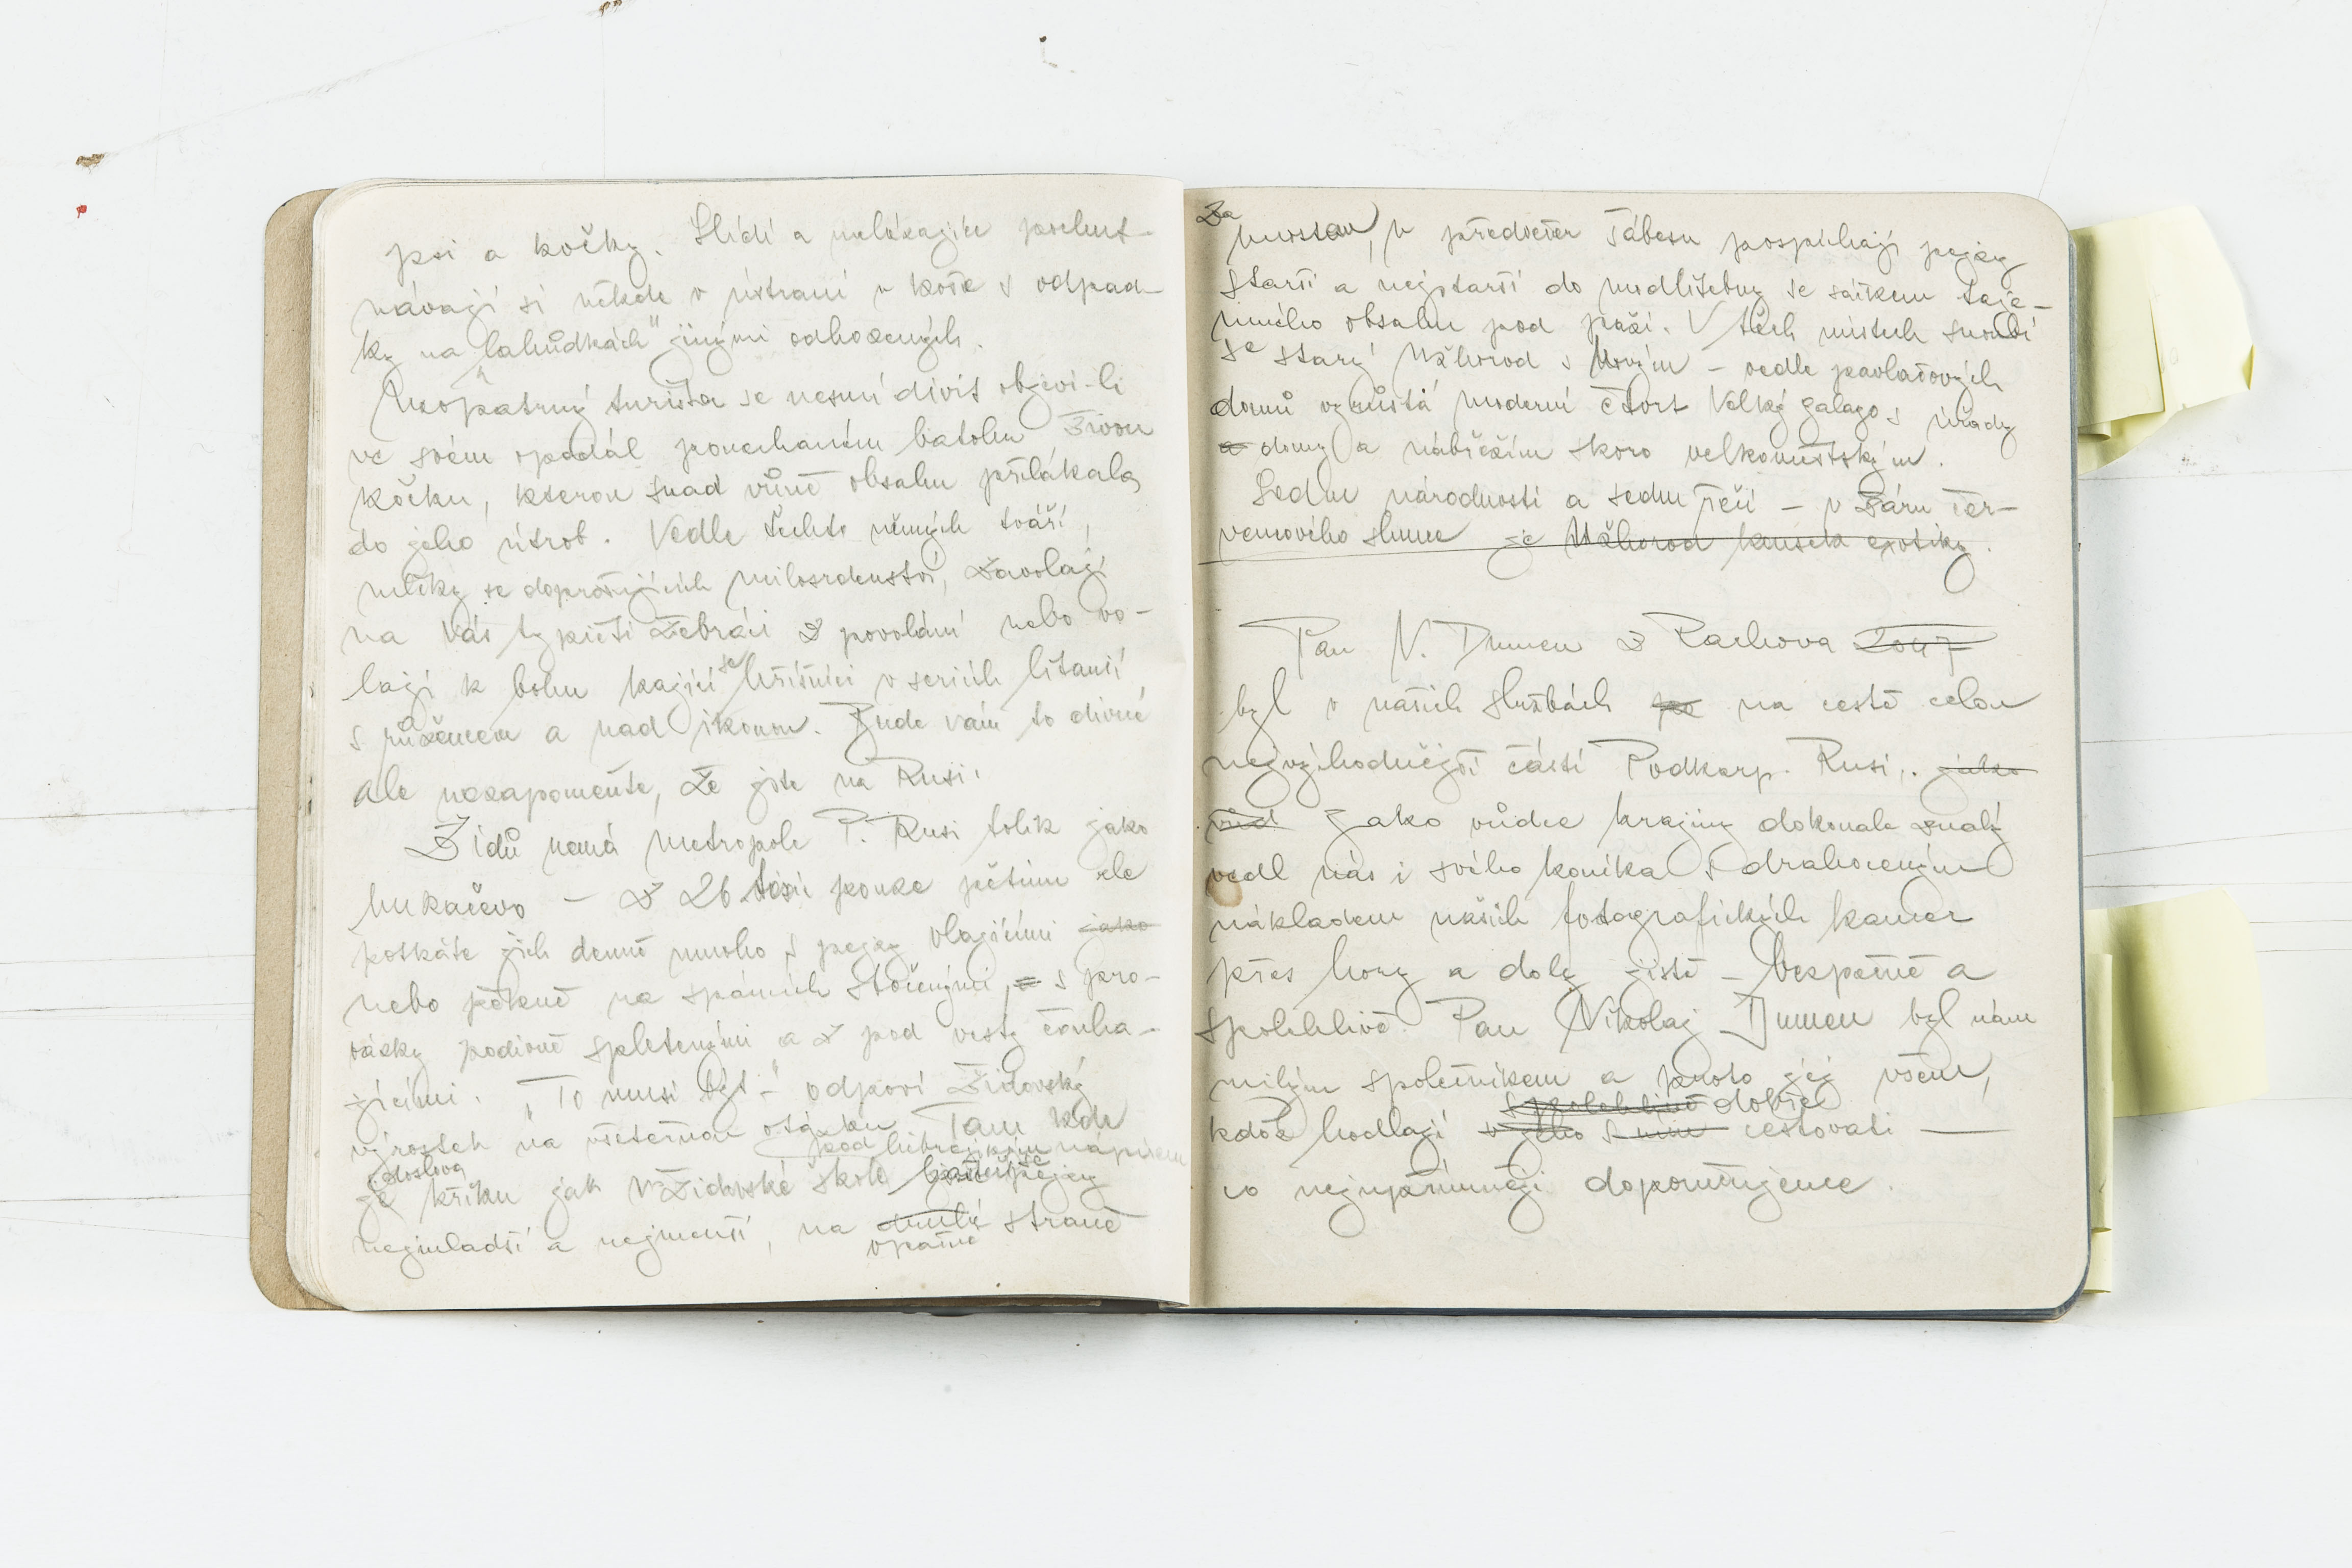 psi a kočky. Slídí a nelákajíce pochut-
návají si někde v ústraní v koši s odpad-
ky na „lahůdkách" jinými odhozených.
Neopatrný turista se nesmí divit objeví-li
ve svém opodál ponechaném batohu živou
kočku, kterou snad vůně obsahu přilákala
do jeho útrob. Vedle těchto němých tváří,
němky se doprošujících milosrdenství, zavolají
na Vás ty pičtí žebráci z povolání nebo vo-
lají k bohu kající se hříšníci v seriích litanií
s růžencem a nad ikonou. Bude vám to divné
ale nezapomeňte, že jste na Rusi.
Židů nemá metropole P. Rusi tolik jako
Mukačevo – z 26 tisíc pouze pětinu ale
potkáte jich denně mnoho s pejzy vlajícími jako
nebo pěkně na spáncích stočenými, = s pro-
vázky podivně spletenými a z pod vesty čouha-
jícími. „To musí být –" odpoví židovský
výrostek na všetečnou otázku. Tam kde
pod hebrejským nápisem
doslova
je křiku jak v židovské škole pejzy
nejmladší a nejmenší, na druhé straně
opačné
Za
mostem, v předvečer šábesu pospíchají pejzy
starší a nejstarší do modlitebny se sáčkem taje-
mného obsahu pod paží. V těch místech snoubí
se starý Užhorod s Novým – vedle pavlačových
domů vyrůstá moderní čtvrť Velký galago s úřady
a domy a nábřežím skoro velkoměstským.
Sedm národností a sedm řečí – v žáru čer-
vencového slunce je Užhorod kousek exotiky.
Pan N. Dumen z Rachova 2047
byl v našich službách po na cestě celou
nejvýchodnější částí Podkarp. Rusi,. jako
vůd Jako vůdce krajiny dokonale znalý
vedl nás i svého koníka s drahocenným
nákladem našich fotografických kamer
přes hory a doly jistě – bezpečně a
spolehlivě. Pan Nikolaj Dumen byl nám
milým společníkem a proto jej všem,
spolehlivě dobře
kdož hodlají v jeho s ním cestovati —
co nejupřímněji doporučujeme.